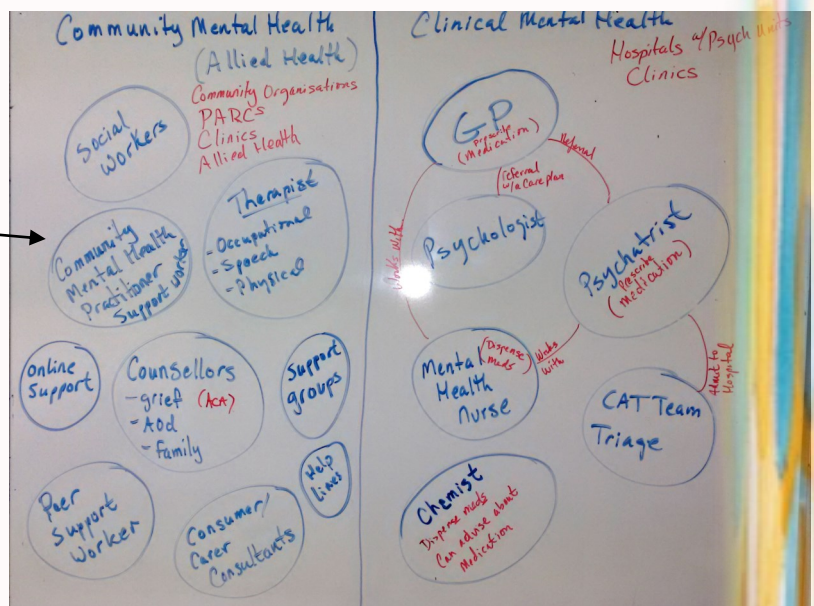 Community Mental Health
(Allied Health)
Community Organisations
PARCs
Clinics
Allied Health
Social
Workers
Therapist
- Occupational
- Speech
- Physical
Community
Mental Health
Practitioner
Support worker
Online
Support
Counsellors
- grief (ACA)
- AOD
- family
Support
groups
Help
Lines
Peer
Support
Worker
Consumer/
Carer
Consultants
Clinical Mental Health
Hospitals w/Psych Units
Clinics
GP
Prescribe
(Medication)
Referral
referral
w/a Care plan
Works with
Psychologist
Psychatrist
Prescribe
(Medication)
Mental
Health
Nurse
(Dispense
meds)
Works
with
Hospital
CAT Team
Triage
Chemist
Dispense meds
Can advise about
Medication